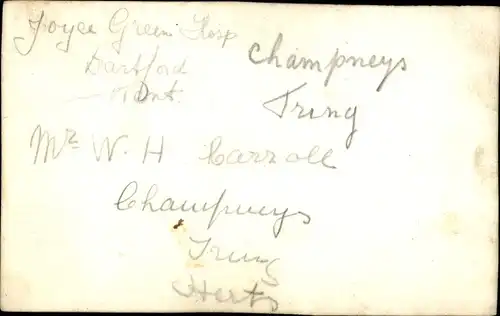 Joyce Green Hosp
Dartford
Kent.
Champneys
Tring
Mr W. H Carroll
Champneys
Tring
Herts